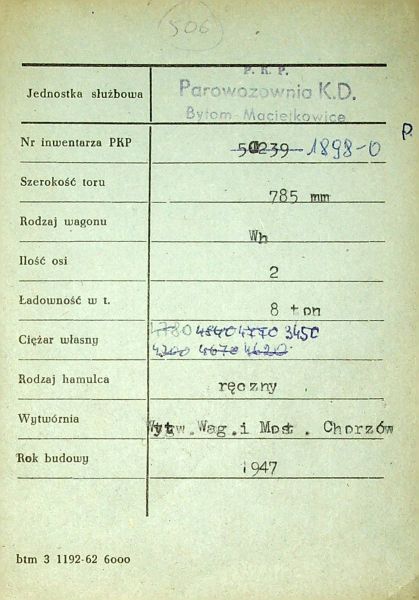 506
Jednostka służbowa
P. K. P.
Parowozownia K.D.
Bytom-Maciejkowice
Nr inwentarza PKP 50239 1898-0
P
Szerokość toru 785 mm
Rodzaj wagonu Wh
Ilość osi 2
Ładowność w t. 8 ton
Ciężar własny 1780 4840 4770 3450
4200 4670 4620
Rodzaj hamulca ręczny
Wytwórnia Wytw.Wag.i Most. Chorzów
Rok budowy 1947
btm 3 1192-62 6000